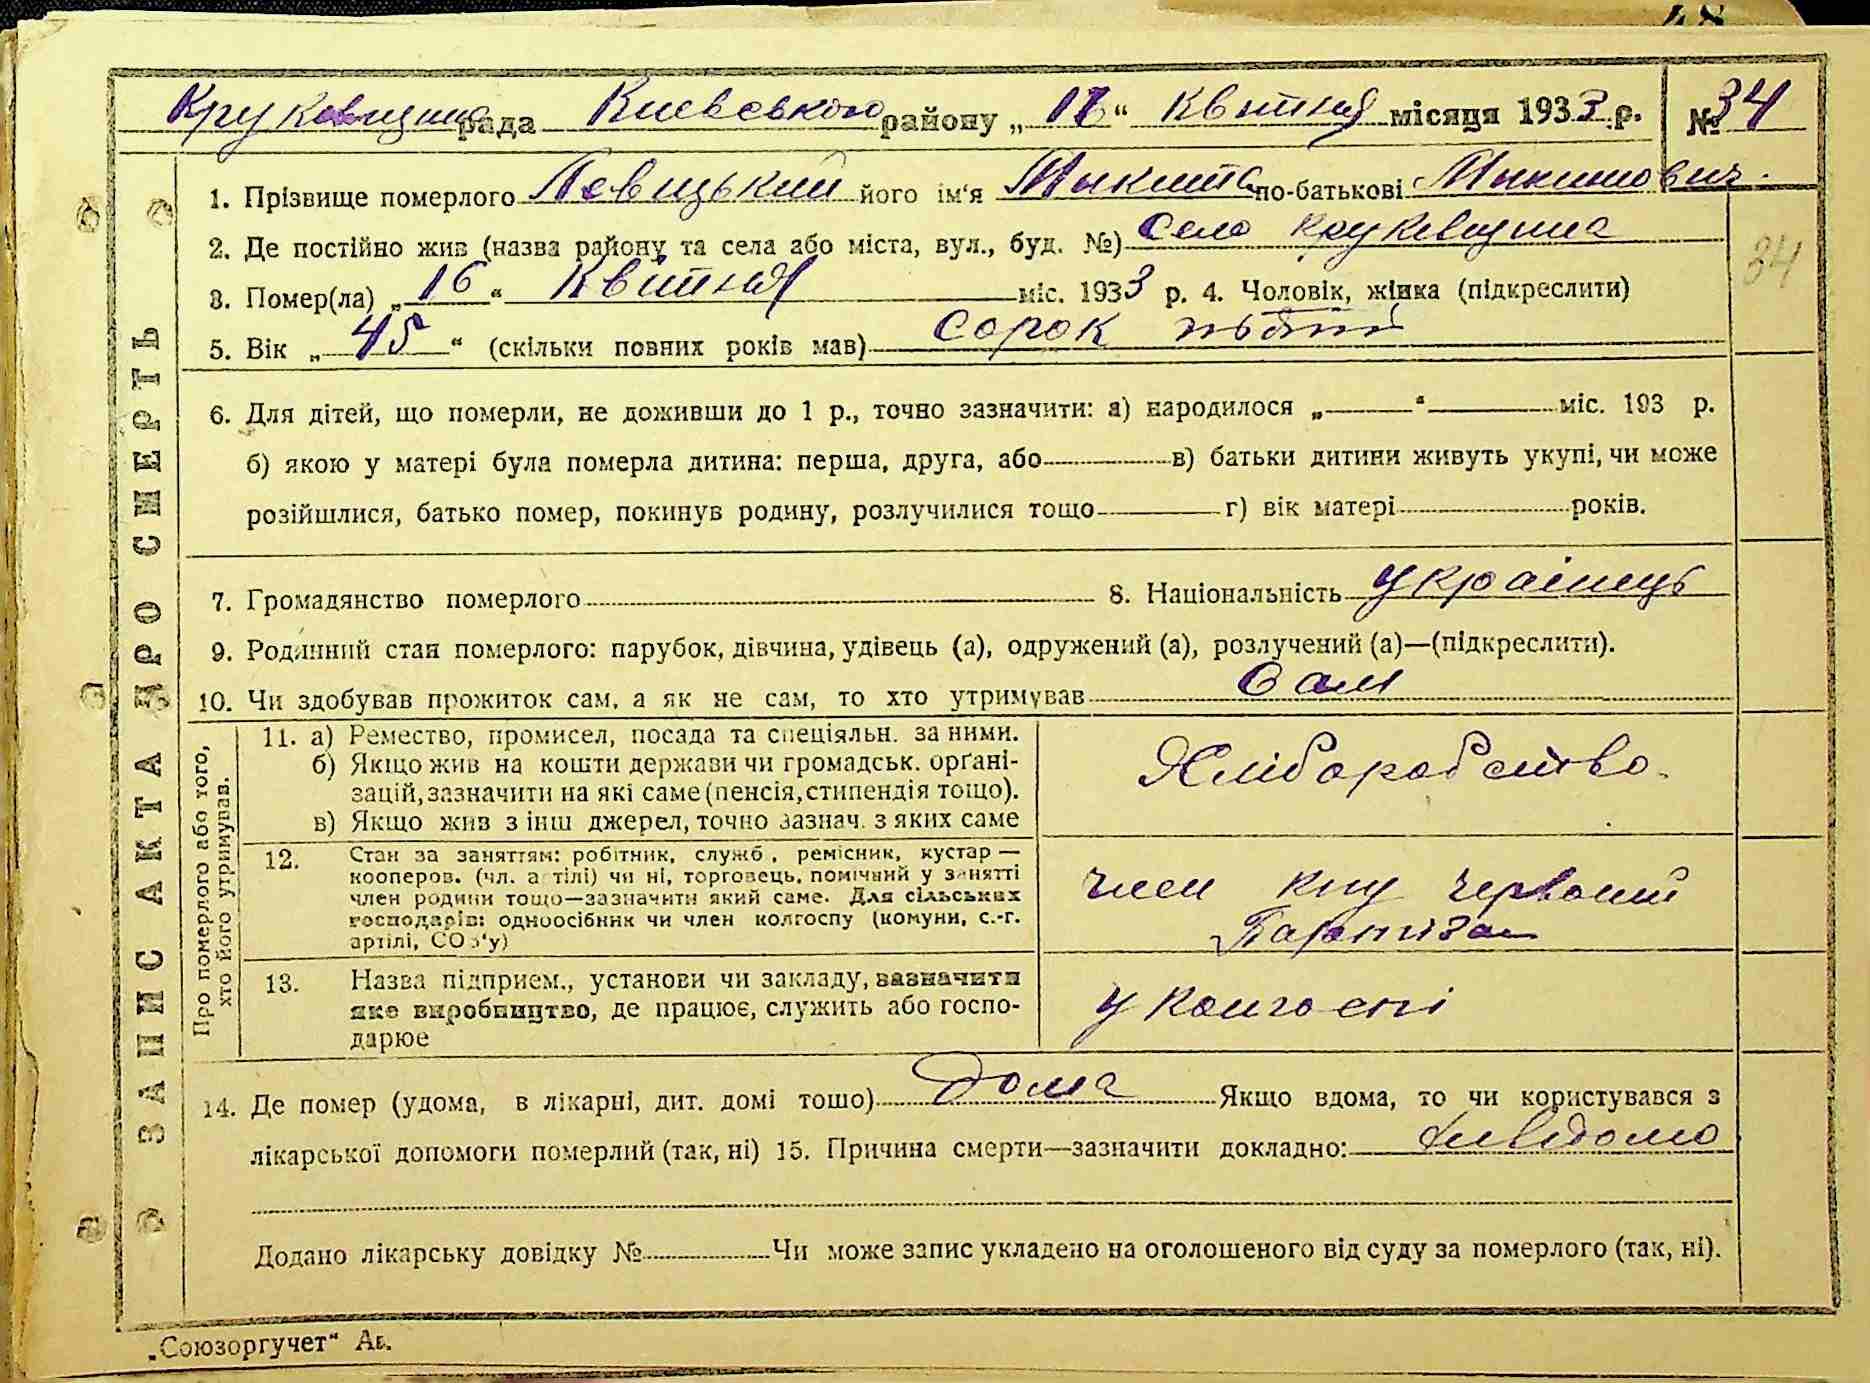 48
Круковщина рада Киевського району „ 17 “ Квітня місяця 1933 р. № 34
1. Прізвище померлого Левицький його ім'я Микита по-батькові Микитович.
2. Де постійно жив (назва району та села або міста, вул., буд. №) Село Круковщина
34
3. Помер(ла) „ 16 “ Квітня міс. 1933 р. 4. Чоловік, жінка (підкреслити)
5. Вік „ 45 “ (скільки повних років мав) Сорок пьятий
6. Для дітей, що померли, не доживши до 1 р., точно зазначити: а) народилося „ “ міс. 193 р.
б) якою у матері була померла дитина: перша, друга, або в) батьки дитини живуть укупі, чи може
розійшлися, батько помер, покинув родину, розлучилися тощо г) вік матері років.
7. Громадянство померлого 8. Національність Україінець
9. Родинний стан померлого: парубок, дівчина, удівець (а), одружений (а), розлучений (а)—(підкреслити).
10. Чи здобував прожиток сам, а як не сам, то хто утримував Сам
Про померлого або того,
хто його утримував.
11. а) Ремество, промисел, посада та спеціяльн. за ними.
б) Якщо жив на кошти держави чи громадськ. орґані-
зацій, зазначити на які саме (пенсія, стипендія тощо).
в) Якщо жив з інш джерел, точно зазнач. з яких саме
Хліборобство.
12. Стан за заняттям: робітник, служб., ремісник, кустар —
кооперов. (чл. артілі) чи ні, торговець, помічний у занятті
член родини тощо—зазначити який саме. Для сільських
господарів: одноосібник чи член колгоспу (комуни, с.-г.
артілі, СОЗ'у)
член Червоний
Партизан
13. Назва підприєм., установи чи закладу, зазначити
яке виробництво, де працює, служить або госпо-
дарює
у колгоспі
14. Де помер (удома, в лікарні, дит. домі тошо) Дома Якщо вдома, то чи користувався з
лікарської допомоги померлий (так, ні) 15. Причина смерти—зазначити докладно:
Додано лікарську довідку № Чи може запис укладено на оголошеного від суду за померлого (так, ні).
ЗАПИС АКТА ПРО СМЕРТЬ
„Союзоргучет“